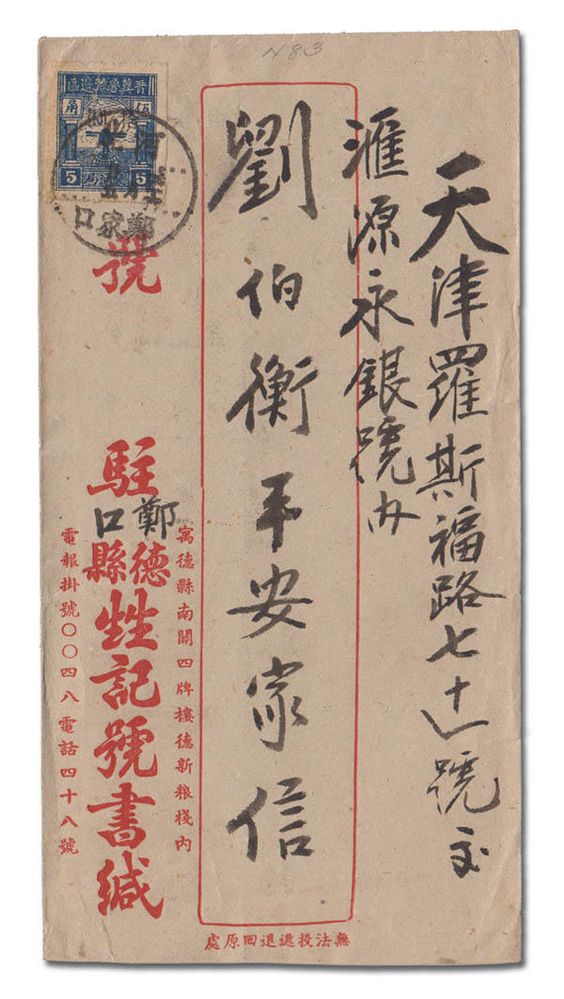 天津羅斯福路七十一號交
滙源永銀號內
劉伯衡平安家信
號
駐
德縣
鄭口
甡記號書緘
寓德縣南關四牌樓德新粮棧內
電報掛號〇〇四八電話四十八號
無法投遞退回原處
晉冀魯豫邊區
伍
角
5
5
鄭家口
483